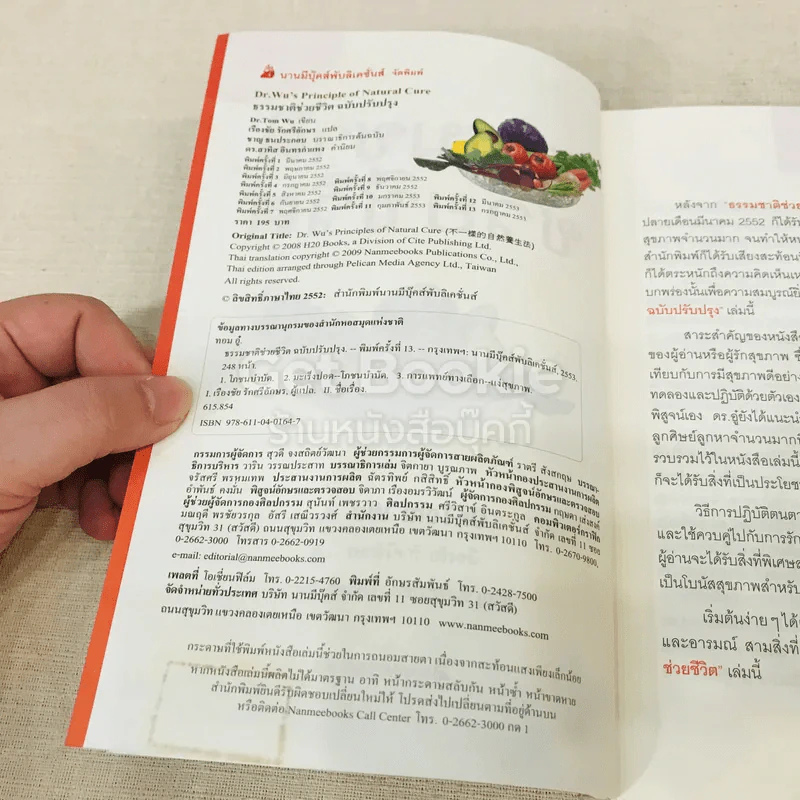 นานมีบุ๊คส์พับลิเคชั่นส์ จัดพิมพ์
Dr.Wu's Principle of Natural Cure
ธรรมชาติช่วยชีวิต ฉบับปรับปรุง
Dr.Tom Wu เขียน
เรืองชัย รักศรีอักษร แปล
ชาญ ธนประกอบ บรรณาธิการต้นฉบับ
ดร.สาทิส อินทรกำแหง คำนิยม
พิมพ์ครั้งที่ 1 มีนาคม 2552
พิมพ์ครั้งที่ 2 พฤษภาคม 2552
พิมพ์ครั้งที่ 3 มิถุนายน 2552 พิมพ์ครั้งที่ 8 พฤศจิกายน 2552
พิมพ์ครั้งที่ 4 กรกฎาคม 2552 พิมพ์ครั้งที่ 9 ธันวาคม 2552
พิมพ์ครั้งที่ 5 สิงหาคม 2552 พิมพ์ครั้งที่ 10 มกราคม 2553 พิมพ์ครั้งที่ 12 มีนาคม 2553
พิมพ์ครั้งที่ 6 กันยายน 2552 พิมพ์ครั้งที่ 11 กุมภาพันธ์ 2553 พิมพ์ครั้งที่ 13 กรกฎาคม 2553
พิมพ์ครั้งที่ 7 พฤศจิกายน 2552
ราคา 195 บาท
Original Title: Dr. Wu's Principles of Natural Cure (不一樣的自然養生法)
Copyright © 2008 H20 Books, a Division of Cite Publishing Ltd.
Thai translation copyright © 2009 Nanmeebooks Publications Co., Ltd.,
Thai edition arranged through Pelican Media Agency Ltd., Taiwan
All rights reserved.
© ลิขสิทธิ์ภาษาไทย 2552: สำนักพิมพ์นานมีบุ๊คส์พับลิเคชั่นส์
ข้อมูลทางบรรณานุกรมของสำนักหอสมุดแห่งชาติ
ทอม อู๋.
ธรรมชาติช่วยชีวิต ฉบับปรับปรุง. -- พิมพ์ครั้งที่ 13. -- กรุงเทพฯ: นานมีบุ๊คส์พับลิเคชั่นส์, 2553.
248 หน้า.
1. โภชนบำบัด. 2. มะเร็งปอด--โภชนบำบัด. 3. การแพทย์ทางเลือก--แง่สุขภาพ.
I. เรืองชัย รักศรีอักษร, ผู้แปล. II. ชื่อเรื่อง.
615.854
ISBN 978-611-04-0164-7
Get Bookie
ร้านหนังสือบุ๊คกี้
กรรมการผู้จัดการ สุวดี จงสถิตย์วัฒนา ผู้ช่วยกรรมการผู้จัดการสายผลิตภัณฑ์ ราตรี สังสกฤษ บรรณา-
ธิการบริหาร วาริน วรรณประสาท บรรณาธิการเล่ม จิตกายา บูรณภาพ หัวหน้ากองประสานงานการผลิต
จรัสศรี พรหมเทพ ประสานงานการผลิต ฉัตรทิพย์ กสิสิทธิ์ หัวหน้ากองพิสูจน์อักษรและตรวจสอบ
อำพันธ์ คงมั่น พิสูจน์อักษรและตรวจสอบ จิตาภา เรืองอมรวิวัฒน์ ผู้จัดการกองศิลปกรรม กฤษดา เส่งสงค์
ผู้ช่วยผู้จัดการกองศิลปกรรม สุนันท์ เพชรวาว ศิลปกรรม ศรีวิสาข์ อินตระกูล คอมพิวเตอร์กราฟิก
มณฤดี พรชัยวรกุล อัสรี เสณีวรวงศ์ สำนักงาน บริษัท นานมีบุ๊คส์พับลิเคชั่นส์ จำกัด เลขที่ 11 ซอย
สุขุมวิท 31 (สวัสดี) ถนนสุขุมวิท แขวงคลองเตยเหนือ เขตวัฒนา กรุงเทพฯ 10110 โทร. 0-2670-9800,
0-2662-3000 โทรสาร 0-2662-0919
e-mail: editorial@nanmeebooks.com
เพลตที่ โอเชี่ยนฟิล์ม โทร. 0-2215-4760 พิมพ์ที่ อักษรสัมพันธ์ โทร. 0-2428-7500
จัดจำหน่ายทั่วประเทศ บริษัท นานมีบุ๊คส์ จำกัด เลขที่ 11 ซอยสุขุมวิท 31 (สวัสดี)
ถนนสุขุมวิท แขวงคลองเตยเหนือ เขตวัฒนา กรุงเทพฯ 10110 www.nanmeebooks.com
กระดาษที่ใช้พิมพ์หนังสือเล่มนี้ช่วยในการถนอมสายตา เนื่องจากสะท้อนแสงเพียงเล็กน้อย
หากหนังสือเล่มนี้ผลิตไม่ได้มาตรฐาน อาทิ หน้ากระดาษสลับกัน หน้าซ้ำ หน้าขาดหาย
สำนักพิมพ์ยินดีรับผิดชอบเปลี่ยนใหม่ให้ โปรดส่งไปเปลี่ยนตามที่อยู่ด้านบน
หรือติดต่อ Nanmeebooks Call Center โทร. 0-2662-3000 กด 1
หลังจาก "ธรรมชาติช่วย
ปลายเดือนมีนาคม 2552 ก็ได้รับ
สุขภาพจำนวนมาก จนทำให้หน
สำนักพิมพ์ก็ได้รับเสียงสะท้อน
ก็ได้ตระหนักถึงความคิดเห็นเห
บกพร่องนั้นเพื่อความสมบูรณ์ยิ่
ฉบับปรับปรุง" เล่มนี้
สาระสำคัญของหนังสือ
ของผู้อ่านหรือผู้รักสุขภาพ ซึ
เทียบกับการมีสุขภาพดีอย่าง
ทดลองและปฏิบัติด้วยตัวเอง
พิสูจน์เอง ดร.อู๋ยังได้แนะนำ
ลูกศิษย์ลูกหาจำนวนมากที่
รวบรวมไว้ในหนังสือเล่มนี้
ก็จะได้รับสิ่งที่เป็นประโยช
วิธีการปฏิบัติตนตา
และใช้ควบคู่ไปกับการรัก
ผู้อ่านจะได้รับสิ่งที่พิเศษส
เป็นโบนัสสุขภาพสำหรับ
เริ่มต้นง่ายๆ ได้
และอารมณ์ สามสิ่งที่
ช่วยชีวิต" เล่มนี้